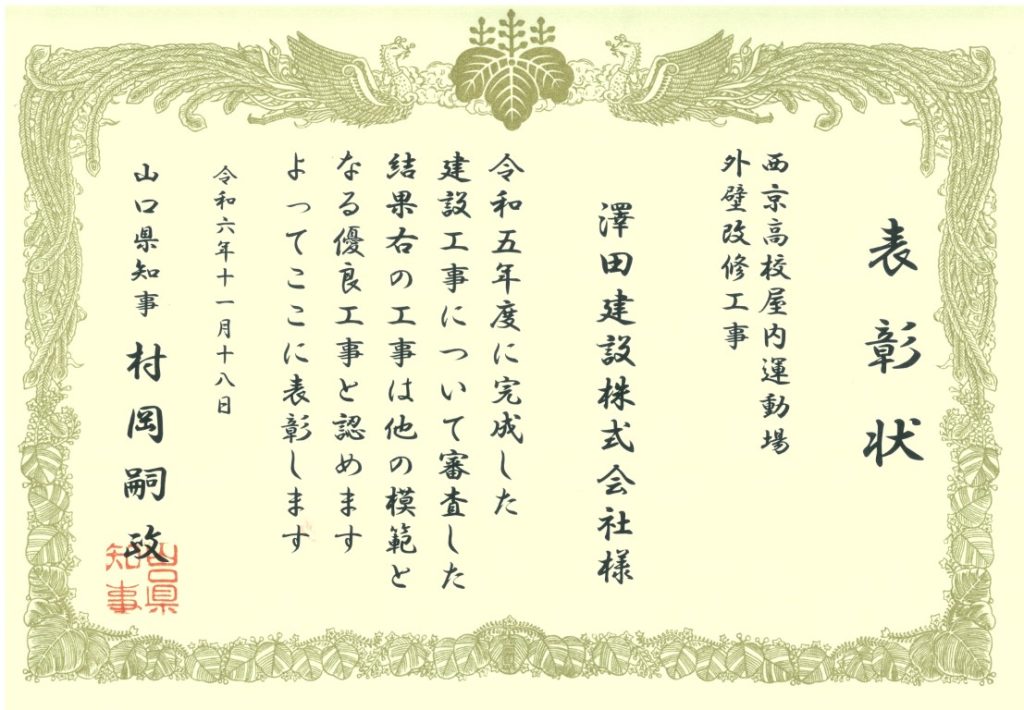 表彰状
西京高校屋内運動場
外壁改修工事
澤田建設株式会社様
令和五年度に完成した
建設工事について審査した
結果右の工事は他の模範と
なる優良工事と認めます
よってここに表彰します
令和六年十一月十八日
山口県知事 村岡嗣政
山口県
知事